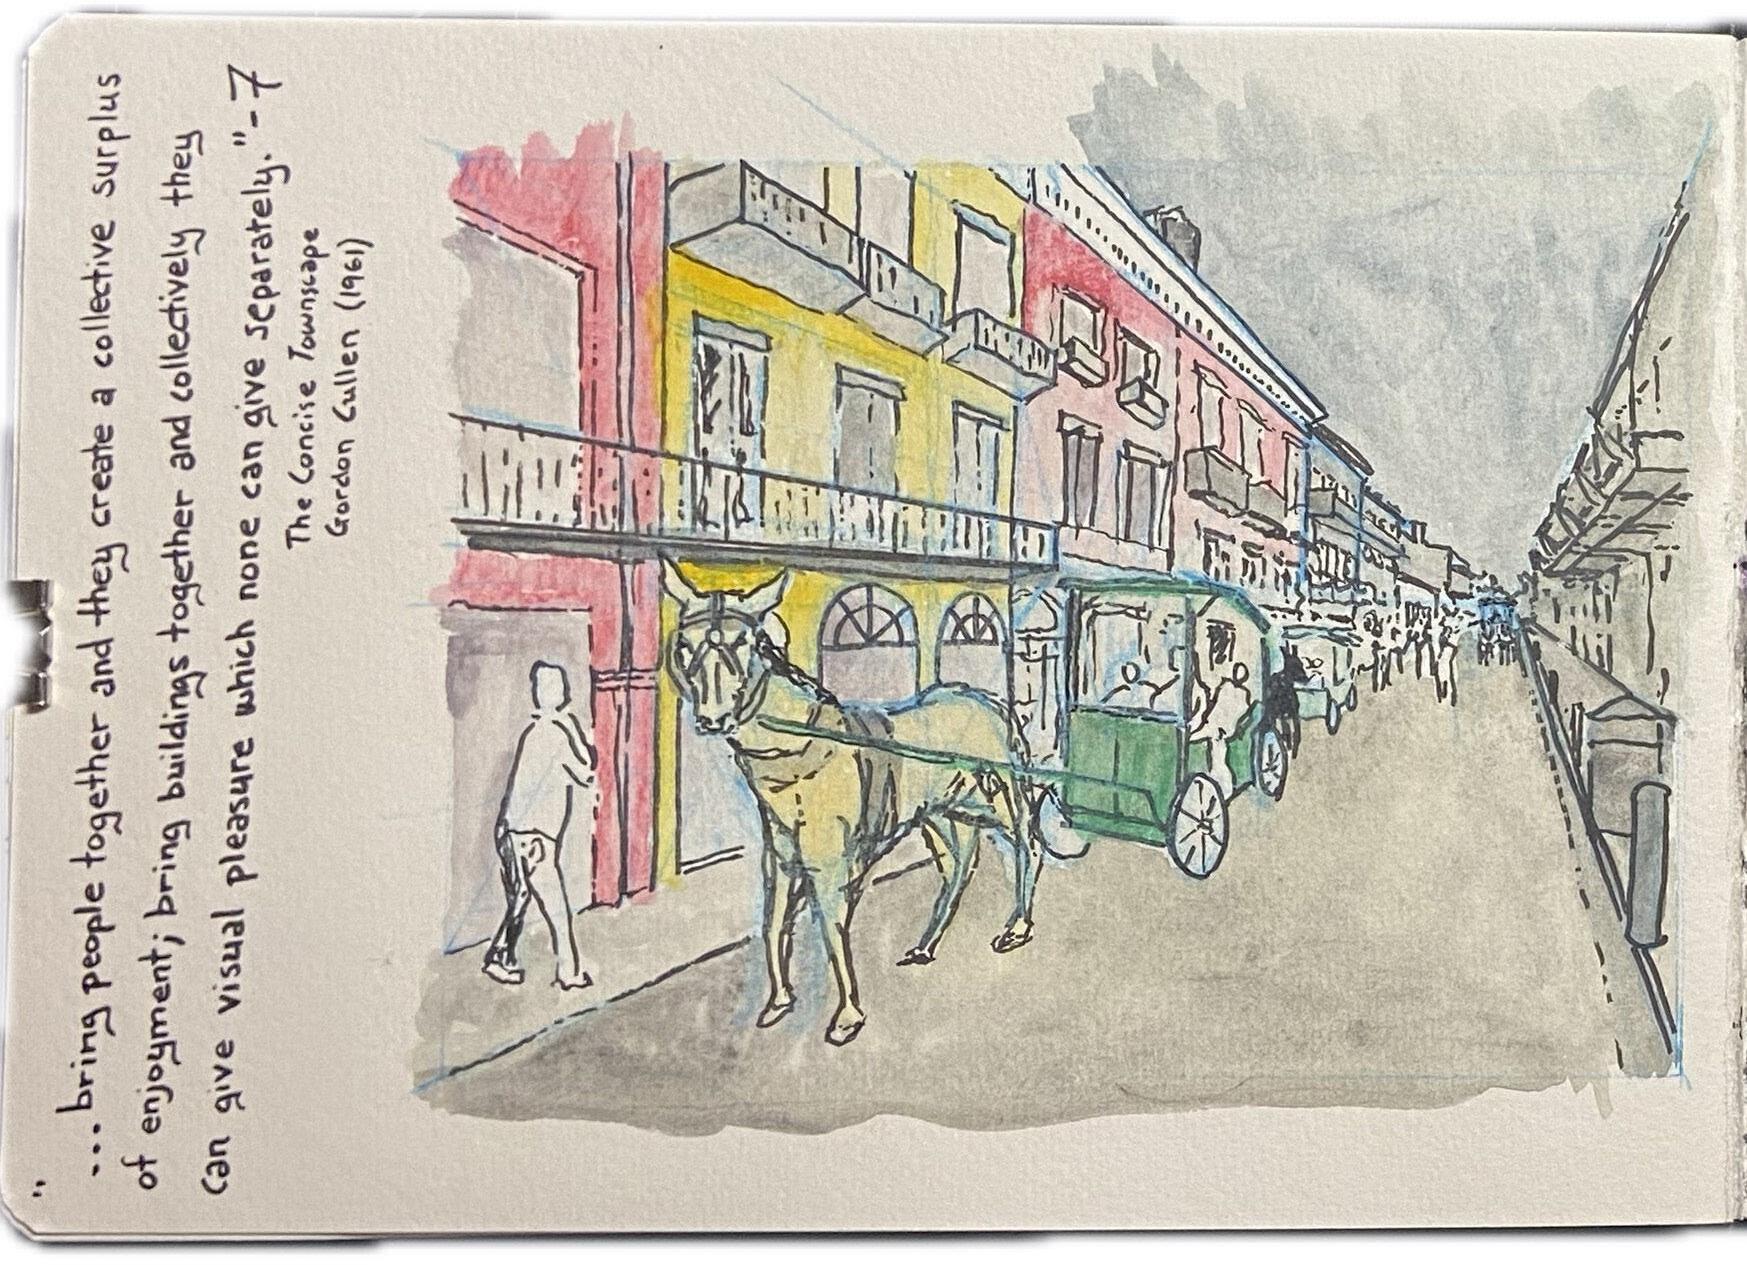 "...bring people together and they create a collective surplus
of enjoyment; bring buildings together and collectively they
can give visual pleasure which none can give separately." - 7
The Concise Townscape
Gordon Cullen (1961)